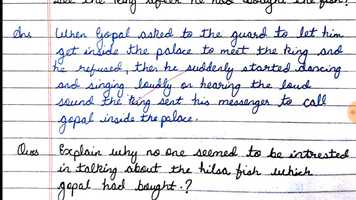 see the king after he had bought the fish?
Ans When Gopal asked to the guard to let him
get inside the palace to meet the king and
he refused, then he suddenly started dancing
and singing loudly on hearing the loud
sound the king sent his messenger to call
gopal inside the palace.
Ques Explain why no one seemed to be intrested
in talking about the hilsa fish which
gopal had bought.?